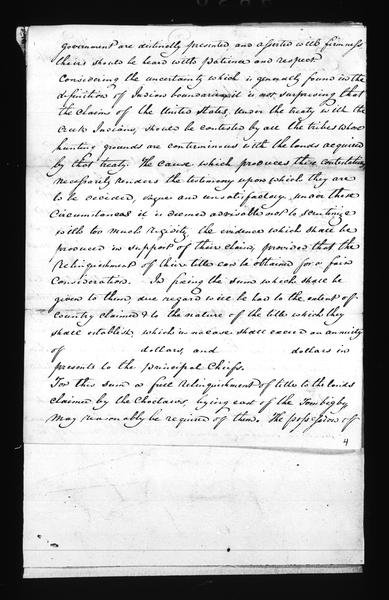 government are distinctly presented and asserted with firmness
theirs should be heard with patience and respect
Considering the uncertainty which is generally found in the
definition of Indian boundaries, it is not surprising that
the claims of the United States, under the treaty with the
Creek Indians, should be contested by all the tribes whose
hunting grounds are conterminous with the lands acquired
by that treaty. The cause which produces these contestations
necessarily renders the testimony upon which they are
to be decided, vague and unsatisfactory. under these
Circumstances it is deemed advisable not to scrutinize
with too much rigidity, the evidence which shall be
produced in support of their claim, provided that the
Relinquishment of their title can be obtained for a fair
Consideration. In fixing the sum which shall be
given to them, due regard will be had to the extent of
Country claimed & to the nature of the title which they
shall establish, which in no case shall exceed an annuity
of dollars, and dollars in
presents to the principal Chiefs.
For this sum a full Relinquishment of title to the lands
claimed by the Choctaws, lying east of the Tombigby
may reasonably be required of them. The possession of
4